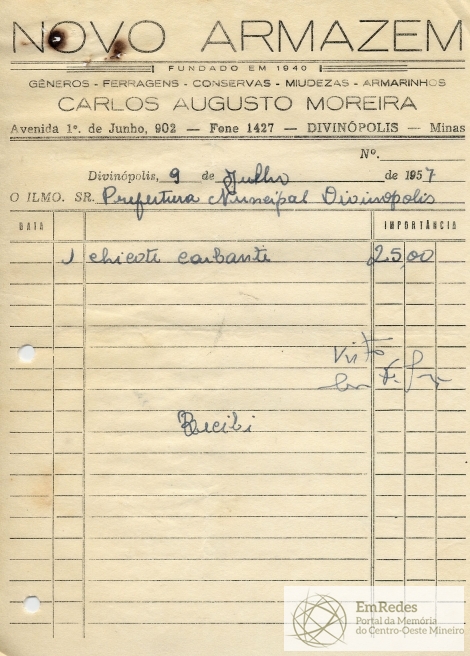 NOVO ARMAZEM
FUNDADO EM 1940
GÊNEROS - FERRAGENS - CONSERVAS - MIUDEZAS - ARMARINHOS
CARLOS AUGUSTO MOREIRA
Avenida 1º. de Junho, 902 — Fone 1427 — DIVINÓPOLIS — Minas
Nº.
Divinópolis, 9 de Julho de 1957
O ILMO. SR. Prefeitura Municipal Divinopolis
DATA IMPORTÂNCIA
1 chicote 25,00
Visto
Recibi
EmRedes
Portal da Memória
do Centro-Oeste Mineiro